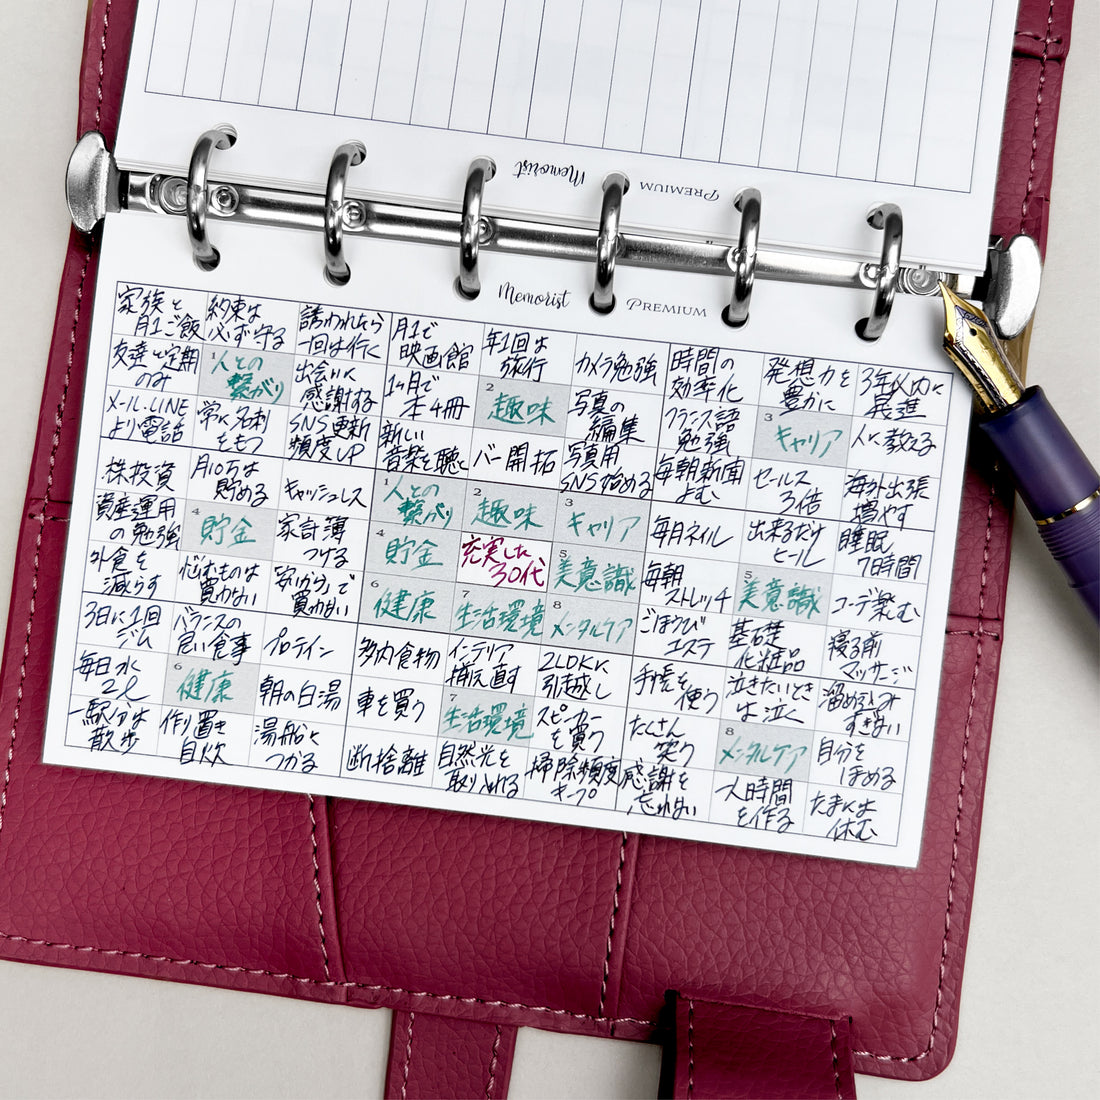 Memorist PREMIUM
Memorist PREMIUM
家族と
月1ご飯
約束は
必ず守る
誘われたら
一回は行く
月1で
映画館
年1回は
旅行
カメラ勉強
時間の
効率化
発想力を
豊かに
3年以内に
昇進
友達と定期
のみ
1
人との
繋がり
出会いに
感謝する
1ヶ月で
本4冊
2
趣味
写真の
編集
フランス語
勉強
3
キャリア
人に教える
メール・LINE
より電話
常に名刺
をもつ
SNS更新
頻度UP
新しい
音楽を聴く
バー開拓
写真用
SNS始める
毎朝新聞
よむ
セールス
3倍
海外出張
増やす
株投資
月10万は
貯める
キャッシュレス
1
人との
繋がり
2
趣味
3
キャリア
毎月ネイル
出来るだけ
ヒール
睡眠
7時間
資産運用
の勉強
4
貯金
家計簿
つける
4
貯金
充実した
30代
5
美意識
毎朝
ストレッチ
5
美意識
コーデ楽む
外食を
減らす
悩むものは
買わない
で
買わない
6
健康
7
生活環境
8
メンタルケア
ごほうび
エステ
基礎
化粧品
寝る前
マッサージ
3日に1回
ジム
バランスの
良い食事
プロテイン
多肉食物
インテリア
揃え直す
2LDKに
引越し
手帳を
使う
泣きたいとき
は泣く
溜めこみ
すぎない
毎日水
2ℓ
6
健康
朝の白湯
車を買う
7
生活環境
スピーカー
を買う
たくさん
笑う
8
メンタルケア
自分を
ほめる
一駅分は
散歩
作り置き
自炊
湯船に
つかる
断捨離
自然光を
取り入れる
掃除頻度
キープ
感謝を
忘れない
一人時間
を作る
たまには
休む